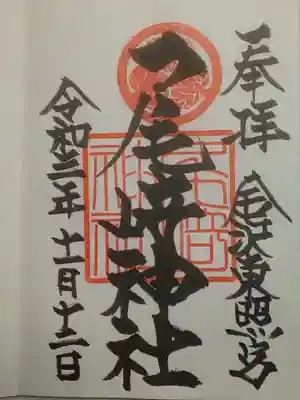 奉拝 金沢東照宮
尾崎神社
令和三年十一月十二日